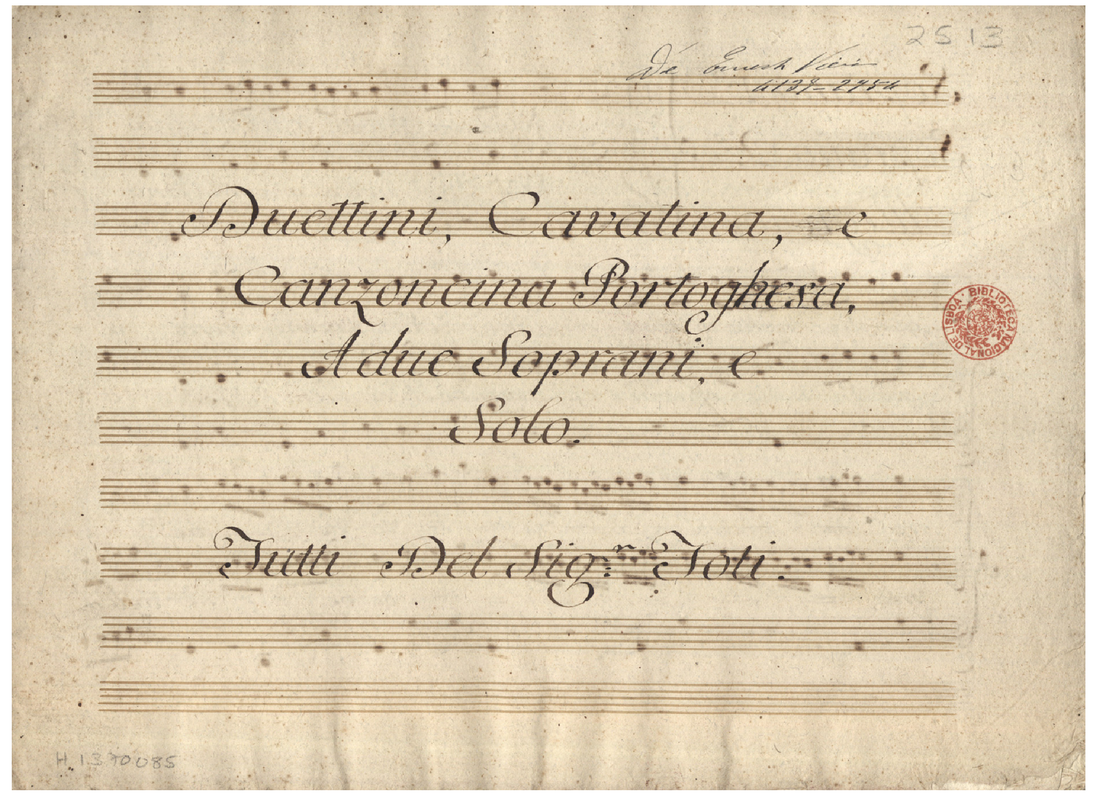 2513
De Ernesto Vieira
Duettini, Cavatina, e
Canzoncina Portoghesa,
A due Soprani, e
Solo.
Tutti Del Sig.r Toti.
BIBLIOTECA NACIONAL DE LISBOA
H.1370085